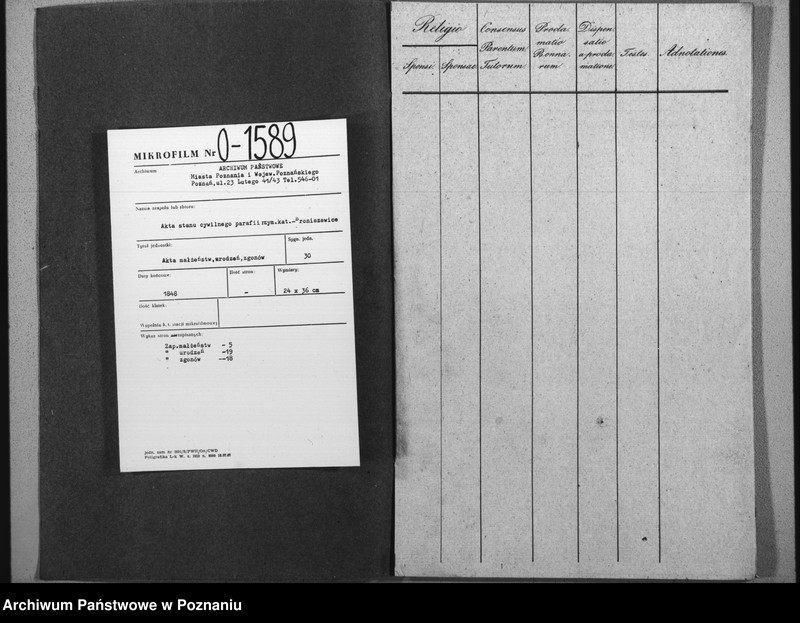 MIKROFILM Nr O-1589
Archiwum
ARCHIWUM PAŃSTWOWE
Miasta Poznania i Wojew.Poznańskiego
Poznań,ul.23 Lutego 41/43 Tel.546-01
Nazwa zespołu lub zbioru:
Akta stanu cywilnego parafii rzym.kat.-Broniszewice
Tytuł jednostki:
Sygn. jedn.
Akta małżeństw,urodzeń,zgonów
30
Daty końcowe:
Ilość stron:
Wymiary:
1848
-
24 x 36 cm
Ilość klatek:
Wykaz stron
Zap.małżeństw - 5
" urodzeń -19
" zgonów --18
Religio
Sponsi.
Sponsae.
Consensus
Parentum
Tutorum.
Procla-
matio
Bonna-
rum.
Dispen-
satio
a procla-
matione.
Testes.
Adnotationes.
Archiwum Państwowe w Poznaniu